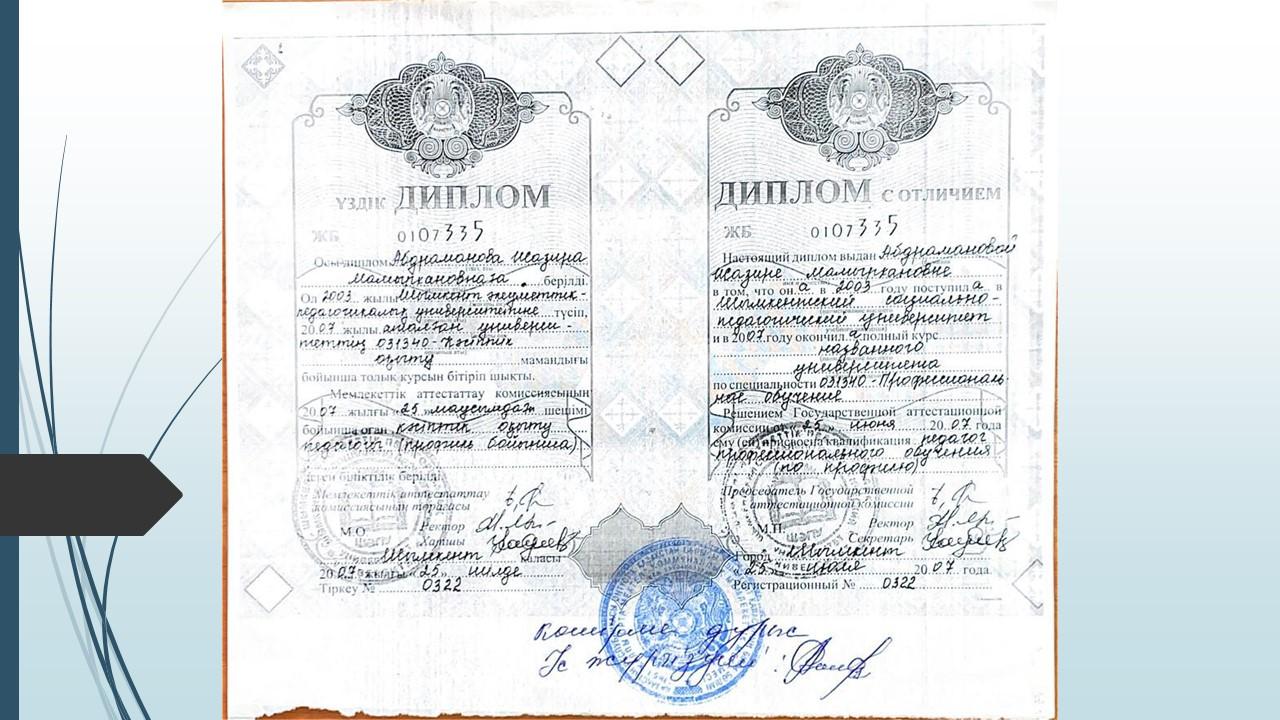 ҮЗДІК ДИПЛОМ
ЖБ 0107335
Осы диплом Абдраманова
берілді.
Ол 2003 жылы Шымкент әлеуметтік-
педагогикалық университетіне түсіп,
2007 жылы аталған универси-
теттің 031340-Кәсіптік
оқыту мамандығы
бойынша толық курсын бітіріп шықты.
Мемлекеттік аттестаттау комиссиясының
2007 жылғы «25» маусымдағы шешімі
бойынша оған кәсіптік оқыту
педагогы (профиль бойынша)
деген біліктілік берілді.
Мемлекеттік аттестаттау
комиссиясының төрағасы
М.О. Ректор
Хатшы
Шымкент қаласы
2007 жылғы «25» шілде
Тіркеу № 0322
ДИПЛОМ С ОТЛИЧИЕМ
ЖБ 0107335
Настоящий диплом выдан Абдрамановой
в том, что он а в 2003 году поступил а в
Шымкентский социально-
педагогический университет
и в 2007 году окончил а полный курс
названного
университета
по специальности 031340-Профессиональ-
ное обучение
Решением Государственной аттестационной
комиссии от «25» июня 2007 года
ему (ей) присвоена квалификация педагог
профессионального обучения
(по профилю)
Председатель Государственной
аттестационной комиссии
М.П. Ректор
Секретарь
Город Шымкент
«25» июля 2007 года
Регистрационный № 0322
Көшірме дұрыс
Іс жүргізуші: